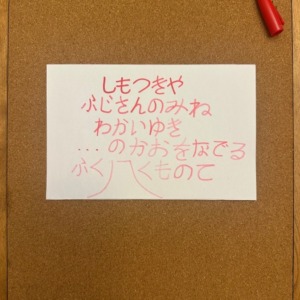 しもつきや
ふじさんのみね
わかいゆき
...のかおをなでる
ふく八くものて